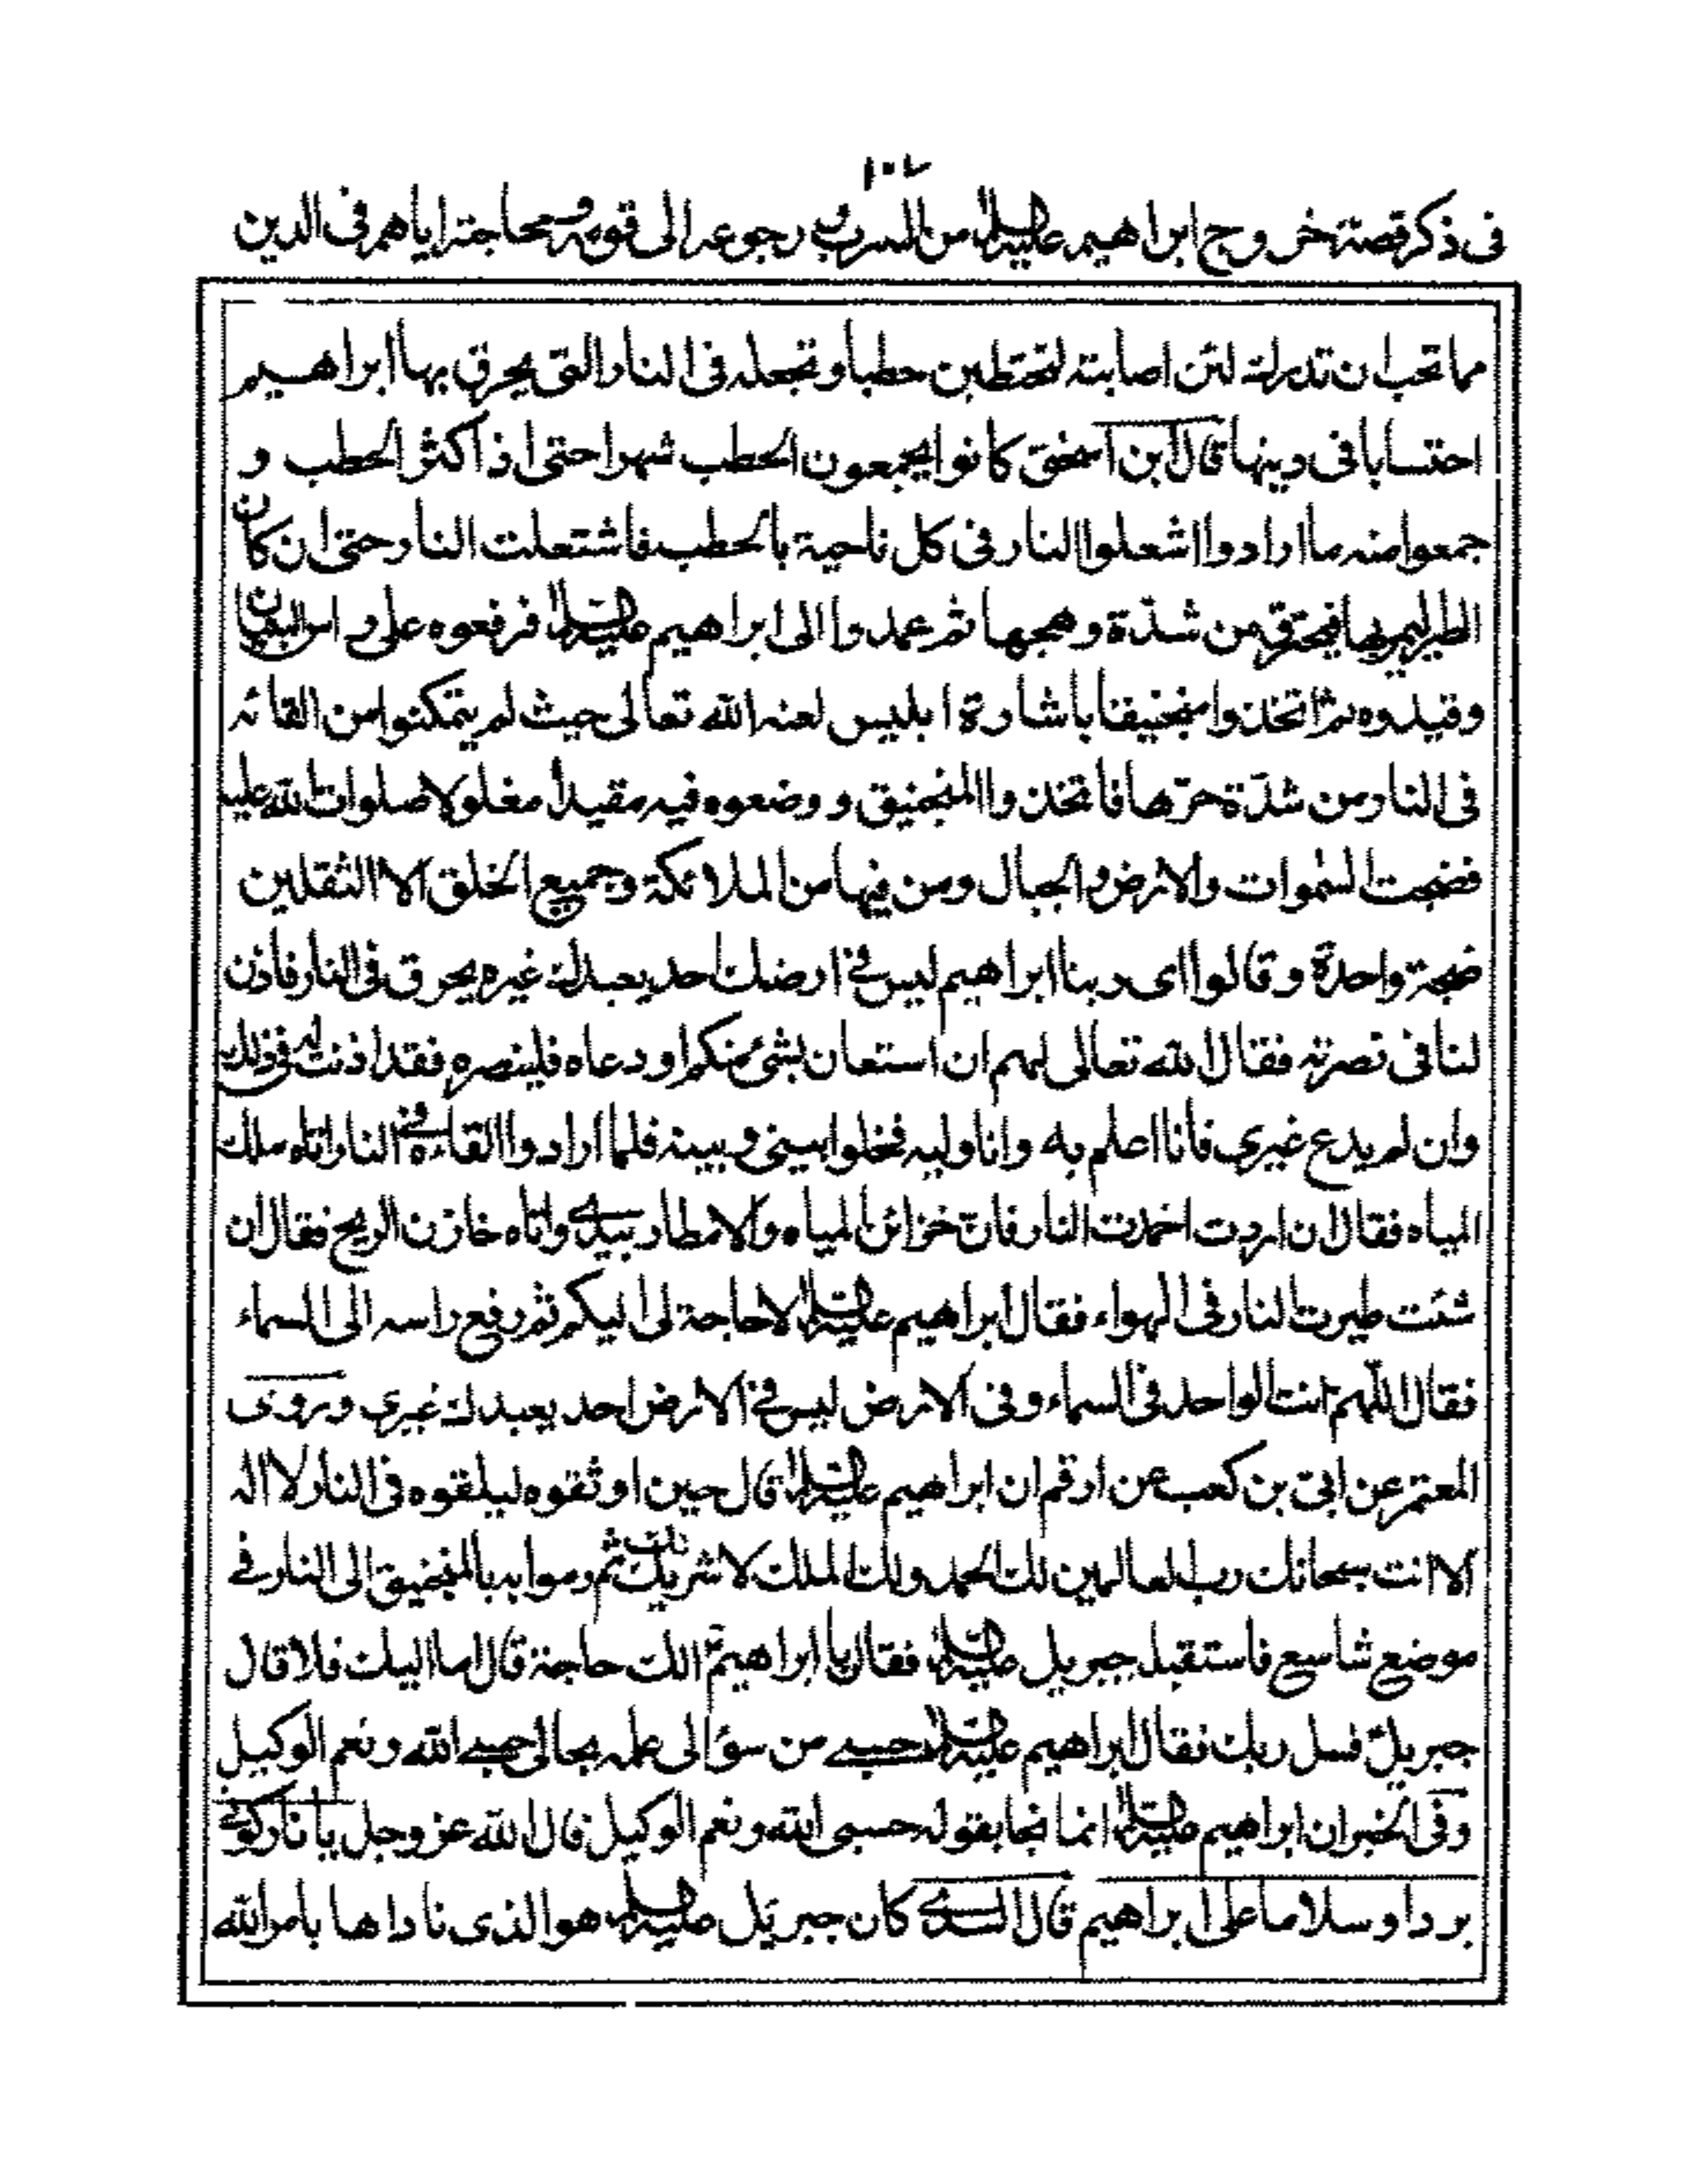 ١٠٧
فى ذكر قصة خروج ابراهيم عليه السلام من السرب و رجوعه الى قومه و محاجته اياهم فى الدين
مما تحب ان تدرك لئن اصابته لتحتطبن حطبا و تجعله فى النار التى يحرق بها ابراهيم
احتسابا فى دينها قال ابن اسحٰق كانوا يجمعون الحطب شهرا حتى اذا كثر الحطب و
جمعوا منه ما ارادوا اشعلوا النار فى كل ناحية بالحطب فاشتعلت النار حتى ان كان
الطير ليمر بها فيحترق من شدّة وهجها ثم عمدوا الى ابراهيم عليه السلام فرفعوه على راس البنيان
وقيدوه ثم اتخذوا منجنيقا باشارة ابليس لعنه الله تعالى حيث لم يتمكنوا من القائه
فى النار من شدّة حرّها فاتخذوا المنجنيق و وضعوه فيه مقيدا مغلولا صلوات الله عليه
فضجت السمٰوات والارض والجبال ومن فيها من الملائكة وجميع الخلق الا الثقلين
ضجة واحدة و قالوا اى ربنا ابراهيم ليس فى ارضك احد يعبدك غيره يحرق فى النار فاذن
لنا فى نصرته فقال الله تعالى لهم ان استعان بشئ منكم او دعاه فلينصره فقد اذنت له فى ذلك
وان لم يدع غيرى فانا اعلم به وانا وليه فخلوا بينى و بينه فلما ارادوا القاءه فى النار اتاه ملك
المياه فقال ان اردت اخمدت النار فان خزائن المياه والامطار بيدى واتاه خازن الريح فقال ان
شئت طيرت النار فى الهواء فقال ابراهيم عليه السلام لا حاجة لى اليكم ثم رفع راسه الى السماء
فقال اللهم انت الواحد فى السماء وفى الارض ليس فى الارض احد يعبدك غيرى وروى
المعتمر عن ابى بن كعب عن ارقم ان ابراهيم عليه السلام قال حين اوثقوه ليلقوه فى النار لا اله
الا انت سبحانك رب العالمين لك الحمد ولك الملك لا شريك لك ثم رموا به بالمنجنيق الى النار فى
موضع شاسع فاستقبله جبريل عليه السلام فقال يا ابراهيم الك حاجة قال اما اليك فلا قال
جبريل فسل ربك فقال ابراهيم عليه السلام حسبى من سؤالى علمه بحالى حسبى الله ونعم الوكيل
وفى الخبر ان ابراهيم عليه السلام انما نجا بقوله حسبى الله ونعم الوكيل قال الله عز وجل يا نار كونى
بردا و سلاما على ابراهيم قال السدى كان جبريل عليه السلام هو الذى ناداها بامر الله